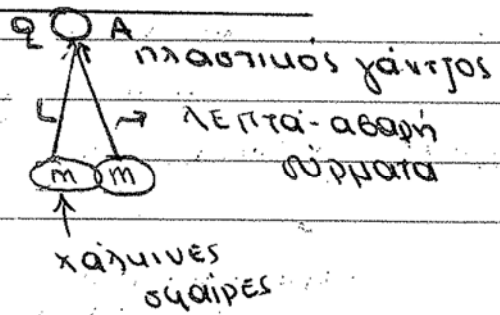 q A
πλαστικος γάντζος
L → λεπτά-αβαρή
σύρματα
m m
χάλκινες
σφαίρες